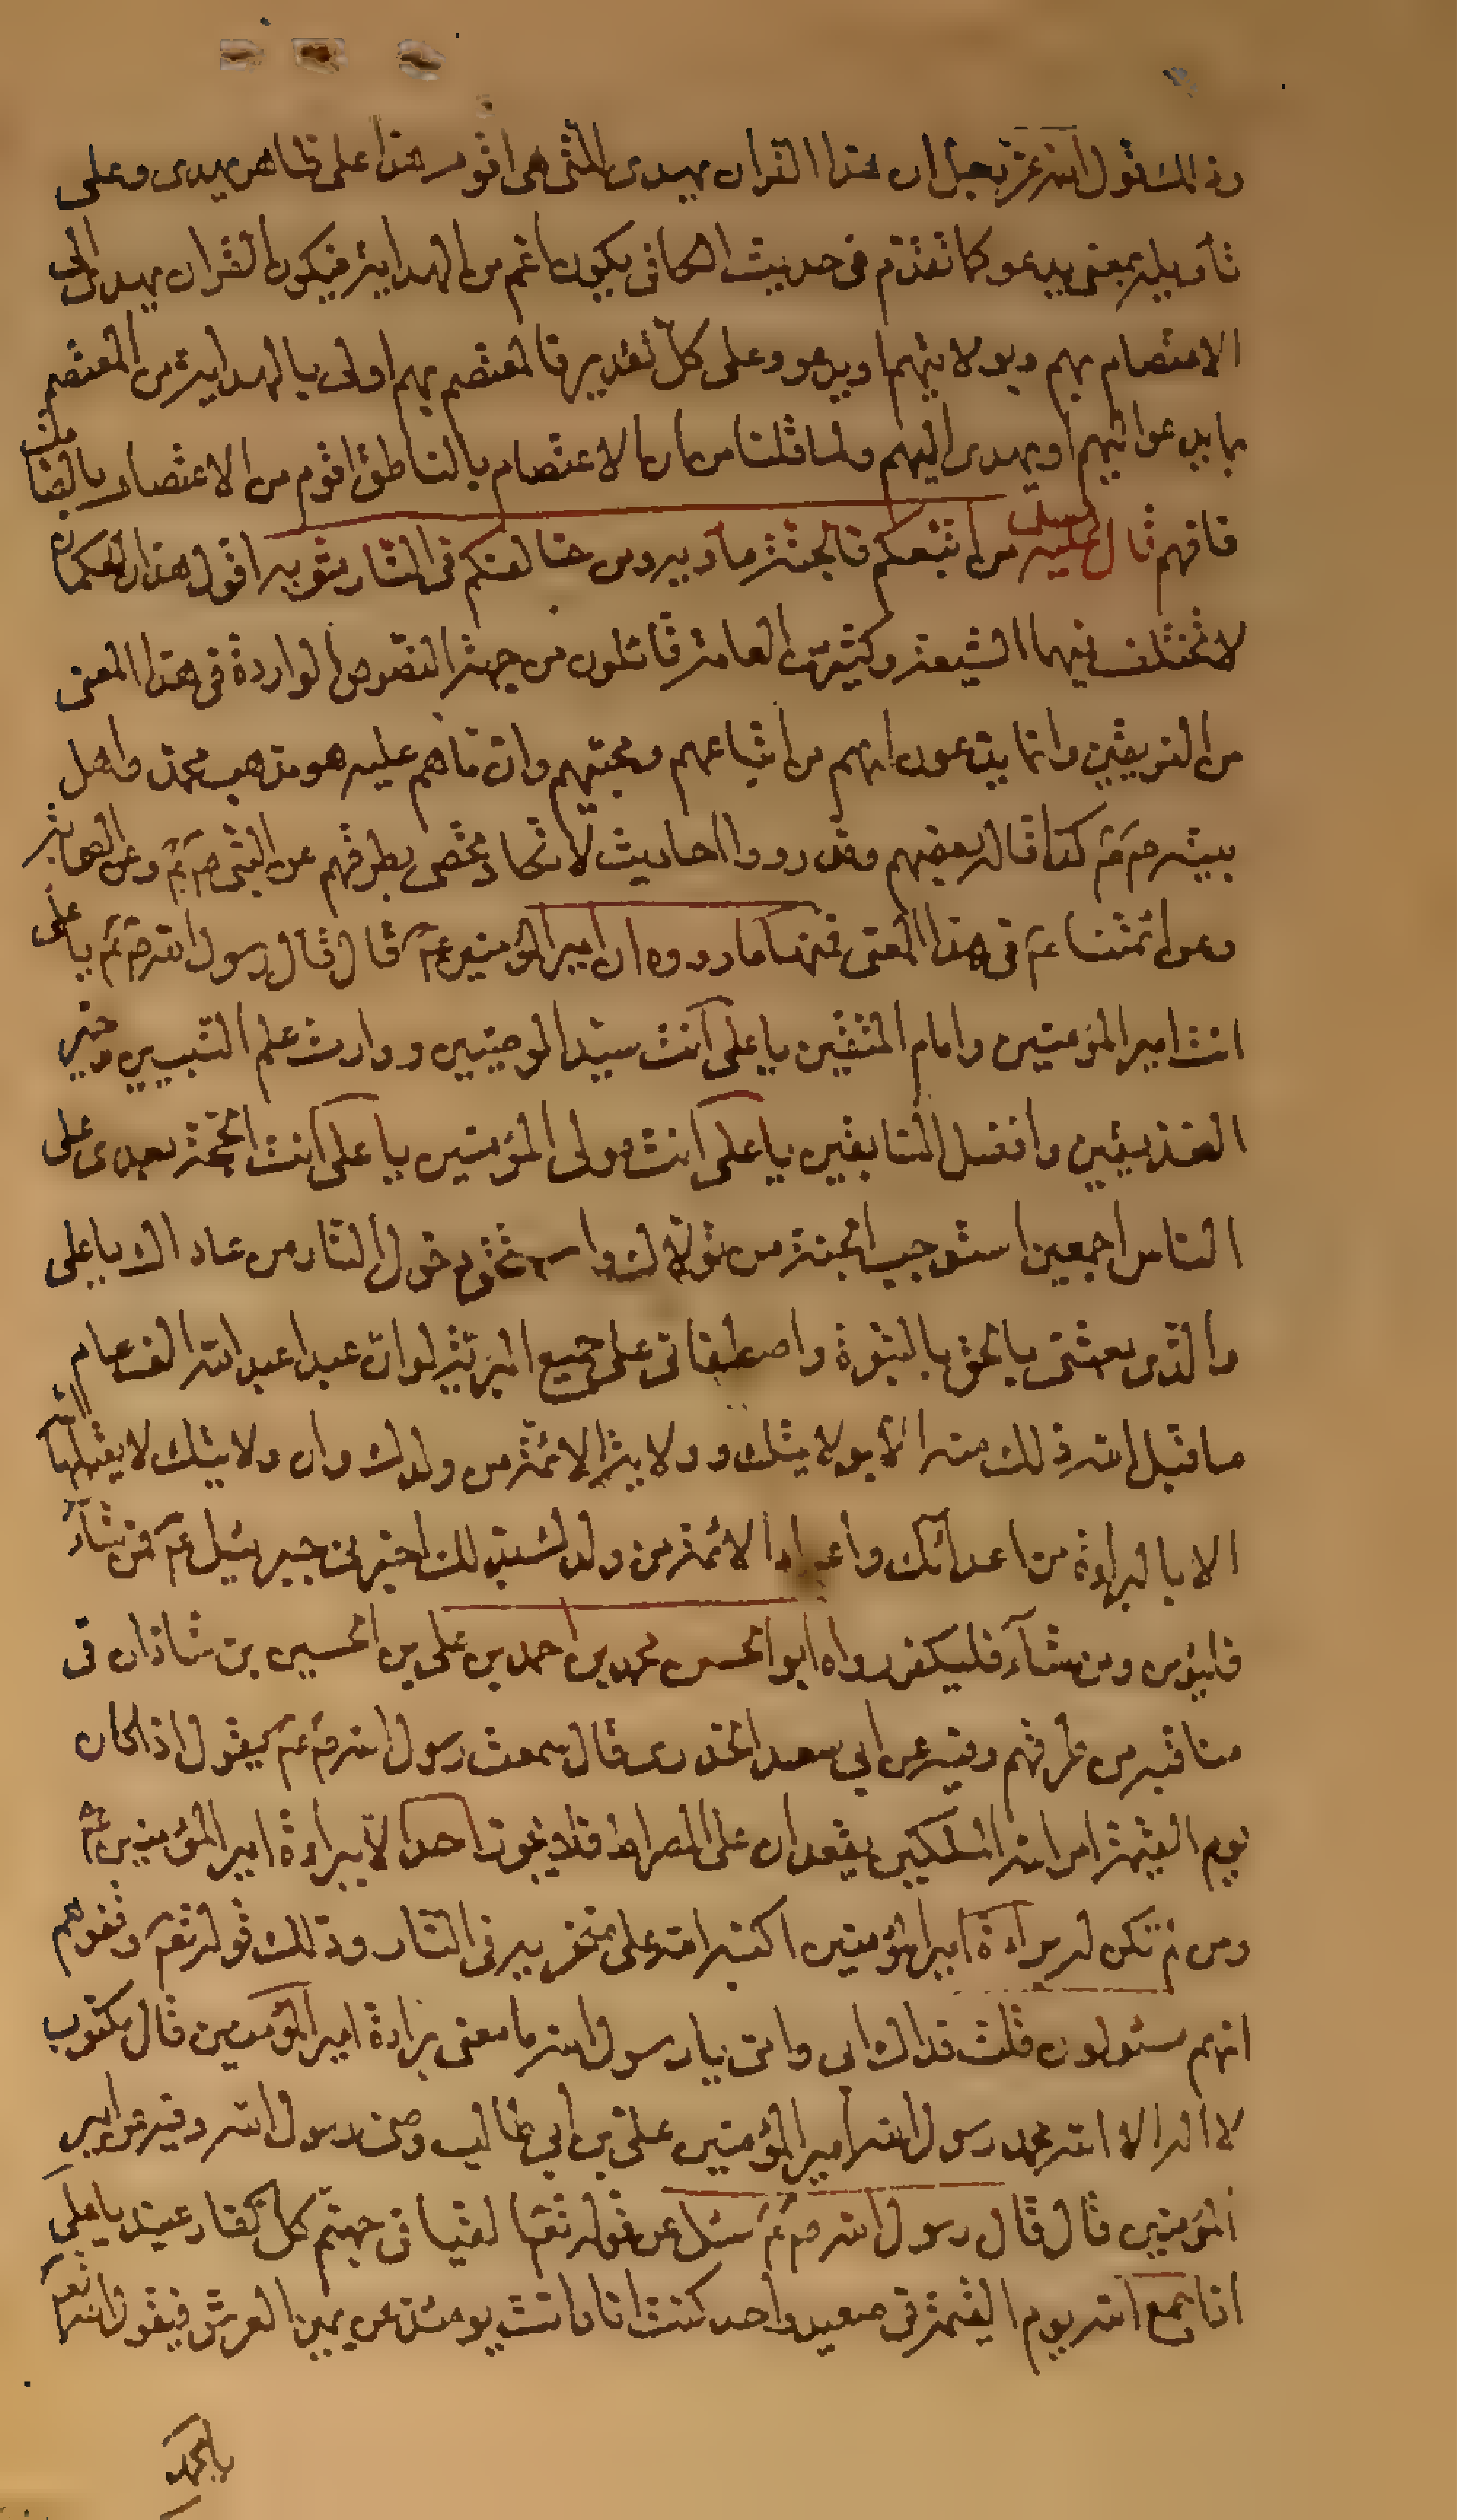 وذلك قول الله عز وجل ان هذا القران يهدى للتى هى اقوم هذا على ظاهر يهدى وعلى
تأويله بمعنى يدعو كما تقدم فى حديث الكافى يكون اعم من الهداية فيكون القران يهدى الى
الاعتصام بهم وبولايتهم او يدعو وعلى كل تقدير فالمعتصم بهم اولى بالهداية من المعتصم
بما يدعو اليهم او يهدى اليهم ولما قلنا من ان الاعتصام بالناطق اقوم من الاعتصام بالصامت
فافهم قال عليه السلام من اتبعكم فالجنة مأويه ومن خالفكم فى النار مثويه اقول هذان الحكمان
لا تختلف فيهما الشيعة وكثير من العامة قائلون من جهة النصوص الواردة فى هذا المعنى
من الفريقين وانما يدعون انهم من اتباعهم ومحبيهم وان ما هم عليه هو مذهب محمد واهل
بيته ص ع كذا قاله بعضهم وقد رووا احاديث لا تكاد تحصى بطرقهم عن النبى ص ع وعن الصحابة
وعن ائمتنا ع فى هذا المعنى فمنها ما رووه ان امير المؤمنين ع قال قال رسول الله ص ع يا على
انت امير المؤمنين وامام المتقين يا على انت سيد الوصيين ووارث علم النبيين وخير
الصديقين وافضل السابقين يا على انت مولى المؤمنين يا على انت الحجة بعدى على
الناس اجمعين استوجب الجنة من تولاك واستحق دخول النار من عاداك يا على
والذى بعثنى بالحق بالنبوة واصطفانى على جميع البرية لو ان عبدا عبد الله الف عام
ما قبل الله ذلك منه الا بولايتك وولاية الائمة من ولدك وان ولايتك لا يقبلها الله
الا بالبراءة من اعدائك واعداء الائمة من ولدك بذلك اخبرنى جبرئيل ع فمن شآء
فليؤمن ومن شآء فليكفر رواه ابو الحسن محمد بن احمد بن على بن الحسين بن شاذان فى
مناقبه من طرقهم وفيه عن ابى سعيد الخدرى قال سمعت رسول الله ص ع يقول اذا كان
يوم القيمة امر الله الملكين يقعدان على الصراط فلا يجوز احد الا ببراءة امير المؤمنين ع
ومن لم تكن له براءة امير المؤمنين اكبه الله على منخريه فى النار وذلك قوله تع وقفوهم
انهم مسئولون قلت فداك ابى وامى يا رسول الله ما معنى براءة امير المؤمنين قال مكتوب
لا اله الا الله محمد رسول الله امير المؤمنين على بن ابى طالب وصى رسول الله وفيه عن امير
المؤمنين قال قال رسول الله ص ع سئل عن قوله تع القيا فى جهنم كل كفار عنيد يا على
اذا جمع الله يوم القيمة فى صعيد واحد كنت انا وانت يومئذ عن يمين العرش فيقول الله تع
يا محمد